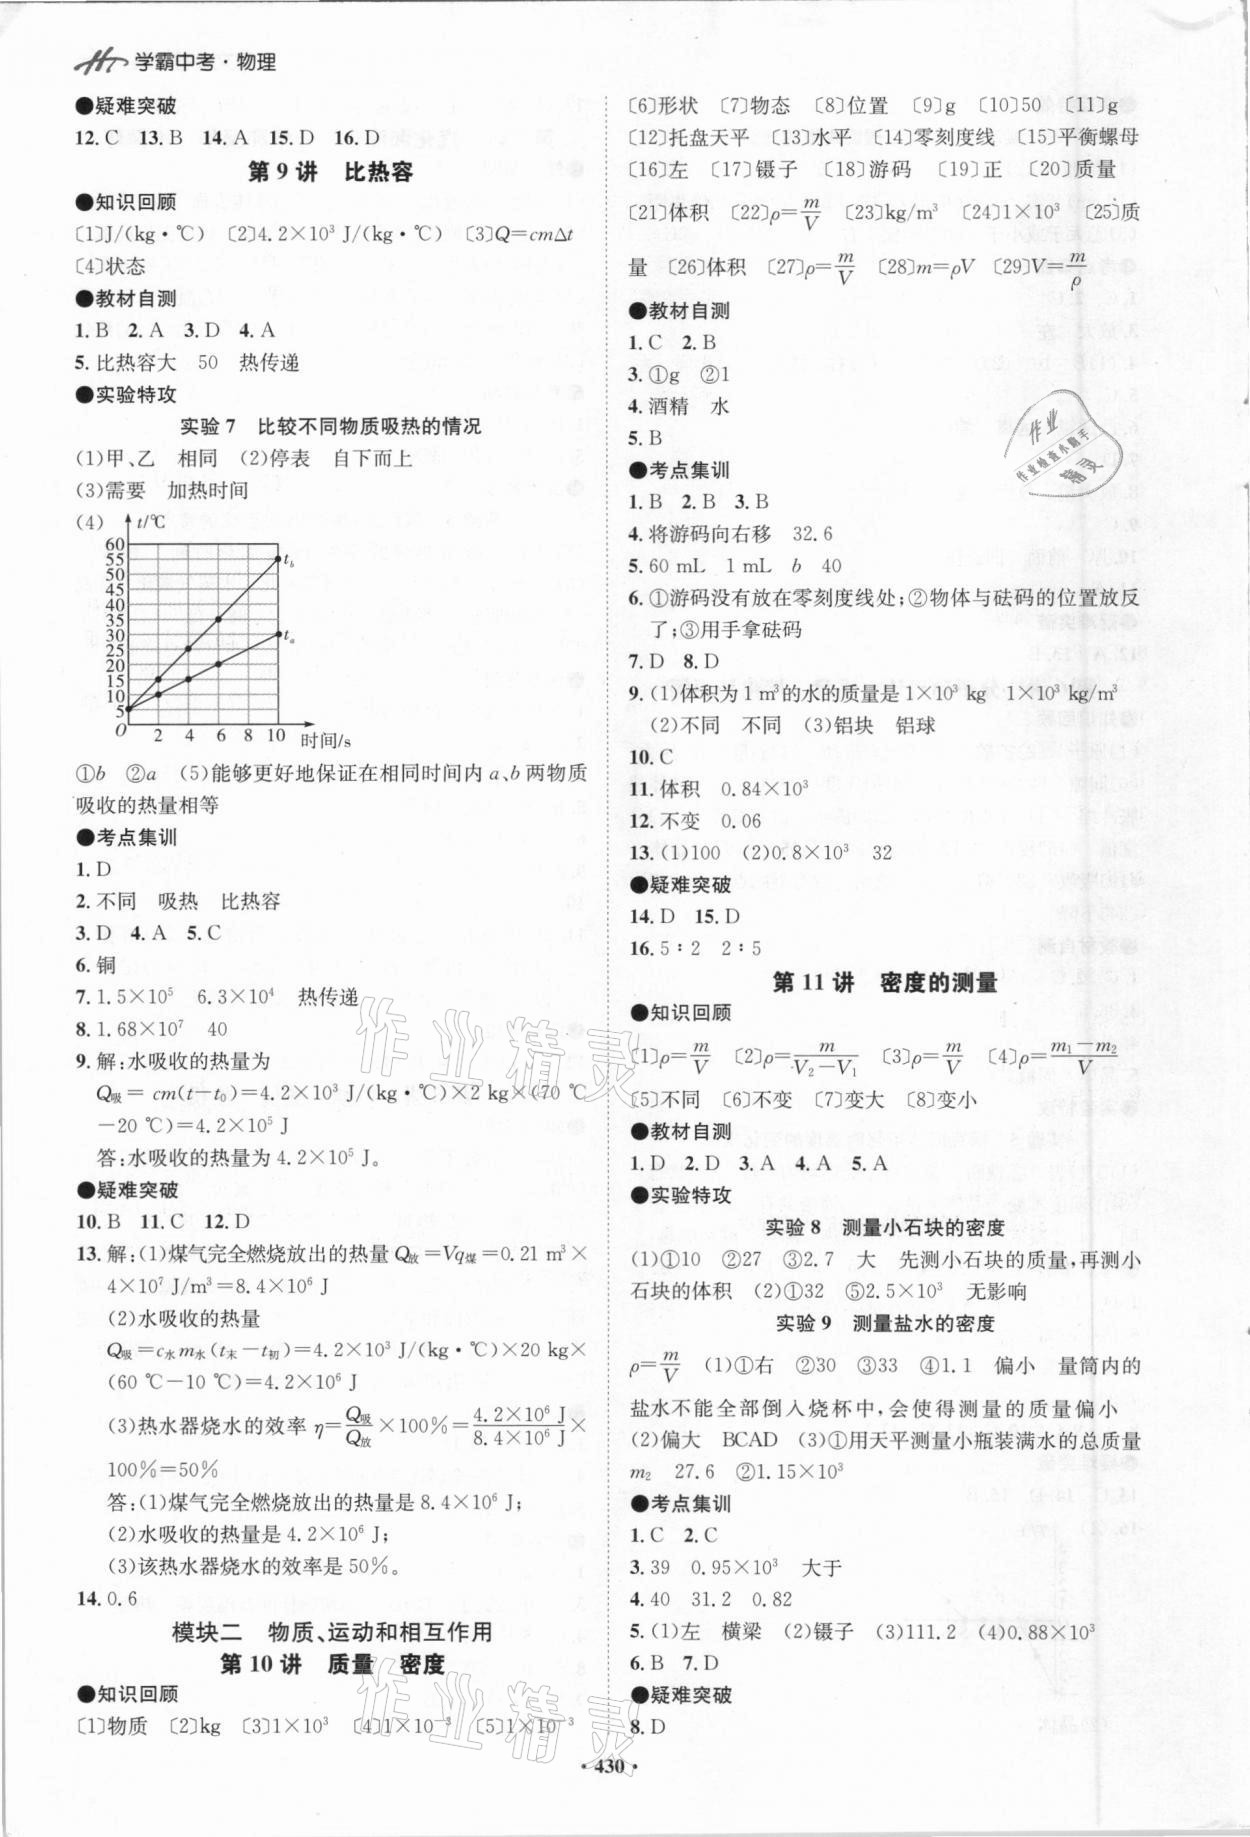 学霸中考·物理
●疑难突破
12. C 13. B 14. A 15. D 16. D
第9讲 比热容
●知识回顾
〔1〕J/(kg·℃) 〔2〕4.2×10³ J/(kg·℃) 〔3〕Q=cmΔt
〔4〕状态
●教材自测
1. B 2. A 3. D 4. A
5. 比热容大 50 热传递
●实验特攻
实验7 比较不同物质吸热的情况
(1)甲、乙 相同 (2)停表 自下而上
(3)需要 加热时间
(4) t/℃
60
55
50
45
40
35
30
25
20
15
10
5
O 2 4 6 8 10 时间/s
t_b
t_a
①b ②a (5)能够更好地保证在相同时间内 a、b 两物质
吸收的热量相等
●考点集训
1. D
2. 不同 吸热 比热容
3. D 4. A 5. C
6. 铜
7. 1.5×10⁵ 6.3×10⁴ 热传递
8. 1.68×10⁷ 40
9. 解:水吸收的热量为
Q吸=cm(t-t₀)=4.2×10³ J/(kg·℃)×2 kg×(70 ℃
-20 ℃)=4.2×10⁵ J
答:水吸收的热量为 4.2×10⁵ J。
●疑难突破
10. B 11. C 12. D
13. 解:(1)煤气完全燃烧放出的热量 Q放=Vq煤=0.21 m³×
4×10⁷ J/m³=8.4×10⁶ J
(2)水吸收的热量
Q吸=c水m水(t末-t初)=4.2×10³ J/(kg·℃)×20 kg×
(60 ℃-10 ℃)=4.2×10⁶ J
(3)热水器烧水的效率 η=Q吸/Q放×100%=4.2×10⁶ J/8.4×10⁶ J×
100%=50%
答:(1)煤气完全燃烧放出的热量是 8.4×10⁶ J;
(2)水吸收的热量是 4.2×10⁶ J;
(3)该热水器烧水的效率是 50%。
14. 0.6
模块二 物质、运动和相互作用
第10讲 质量 密度
●知识回顾
〔1〕物质 〔2〕kg 〔3〕1×10³ 〔4〕1×10⁻³ 〔5〕1×10⁻³
〔6〕形状 〔7〕物态 〔8〕位置 〔9〕g 〔10〕50 〔11〕g
〔12〕托盘天平 〔13〕水平 〔14〕零刻度线 〔15〕平衡螺母
〔16〕左 〔17〕镊子 〔18〕游码 〔19〕正 〔20〕质量
〔21〕体积 〔22〕ρ=m/V 〔23〕kg/m³ 〔24〕1×10³ 〔25〕质
量 〔26〕体积 〔27〕ρ=m/V 〔28〕m=ρV 〔29〕V=m/ρ
●教材自测
1. C 2. B
3. ①g ②1
4. 酒精 水
5. B
●考点集训
1. B 2. B 3. B
4. 将游码向右移 32.6
5. 60 mL 1 mL b 40
6. ①游码没有放在零刻度线处;②物体与砝码的位置放反
了;③用手拿砝码
7. D 8. D
9. (1)体积为 1 m³的水的质量是 1×10³ kg 1×10³ kg/m³
(2)不同 不同 (3)铝块 铝球
10. C
11. 体积 0.84×10³
12. 不变 0.06
13. (1)100 (2)0.8×10³ 32
●疑难突破
14. D 15. D
16. 5∶2 2∶5
第11讲 密度的测量
●知识回顾
〔1〕ρ=m/V 〔2〕ρ=m/(V₂-V₁) 〔3〕ρ=m/V 〔4〕ρ=(m₁-m₂)/V
〔5〕不同 〔6〕不变 〔7〕变大 〔8〕变小
●教材自测
1. D 2. D 3. A 4. A 5. A
●实验特攻
实验8 测量小石块的密度
(1)①10 ②27 ③2.7 大 先测小石块的质量,再测小
石块的体积 (2)①32 ⑤2.5×10³ 无影响
实验9 测量盐水的密度
ρ=m/V (1)①右 ②30 ③33 ④1.1 偏小 量筒内的
盐水不能全部倒入烧杯中,会使得测量的质量偏小
(2)偏大 BCAD (3)①用天平测量小瓶装满水的总质量
m₂ 27.6 ②1.15×10³
●考点集训
1. C 2. C
3. 39 0.95×10³ 大于
4. 40 31.2 0.82
5. (1)左 横梁 (2)镊子 (3)111.2 (4)0.88×10³
6. B 7. D
●疑难突破
8. D
·430·
作业
作业检查小助手
精灵
作业精灵
作业精灵